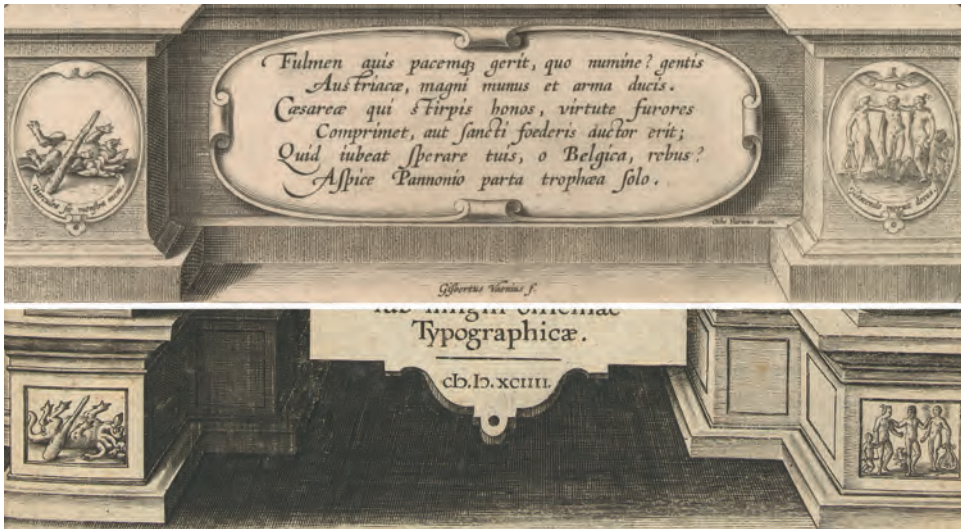 Fulmen auis pacemq; gerit, quo numine? gentis
Austriacæ, magni munus et arma ducis.
Cæsareæ qui stirpis honos, virtute furores
Comprimet, aut sancti foederis auctor erit;
Quid iubeat sperare tuis, o Belgica, rebus?
Aspice Pannonio parta trophæa solo.
Otho Vænius inuen.
Gisbertus Vænius f.
Typographicæ.
cIɔ.Iɔ.XCIIII.